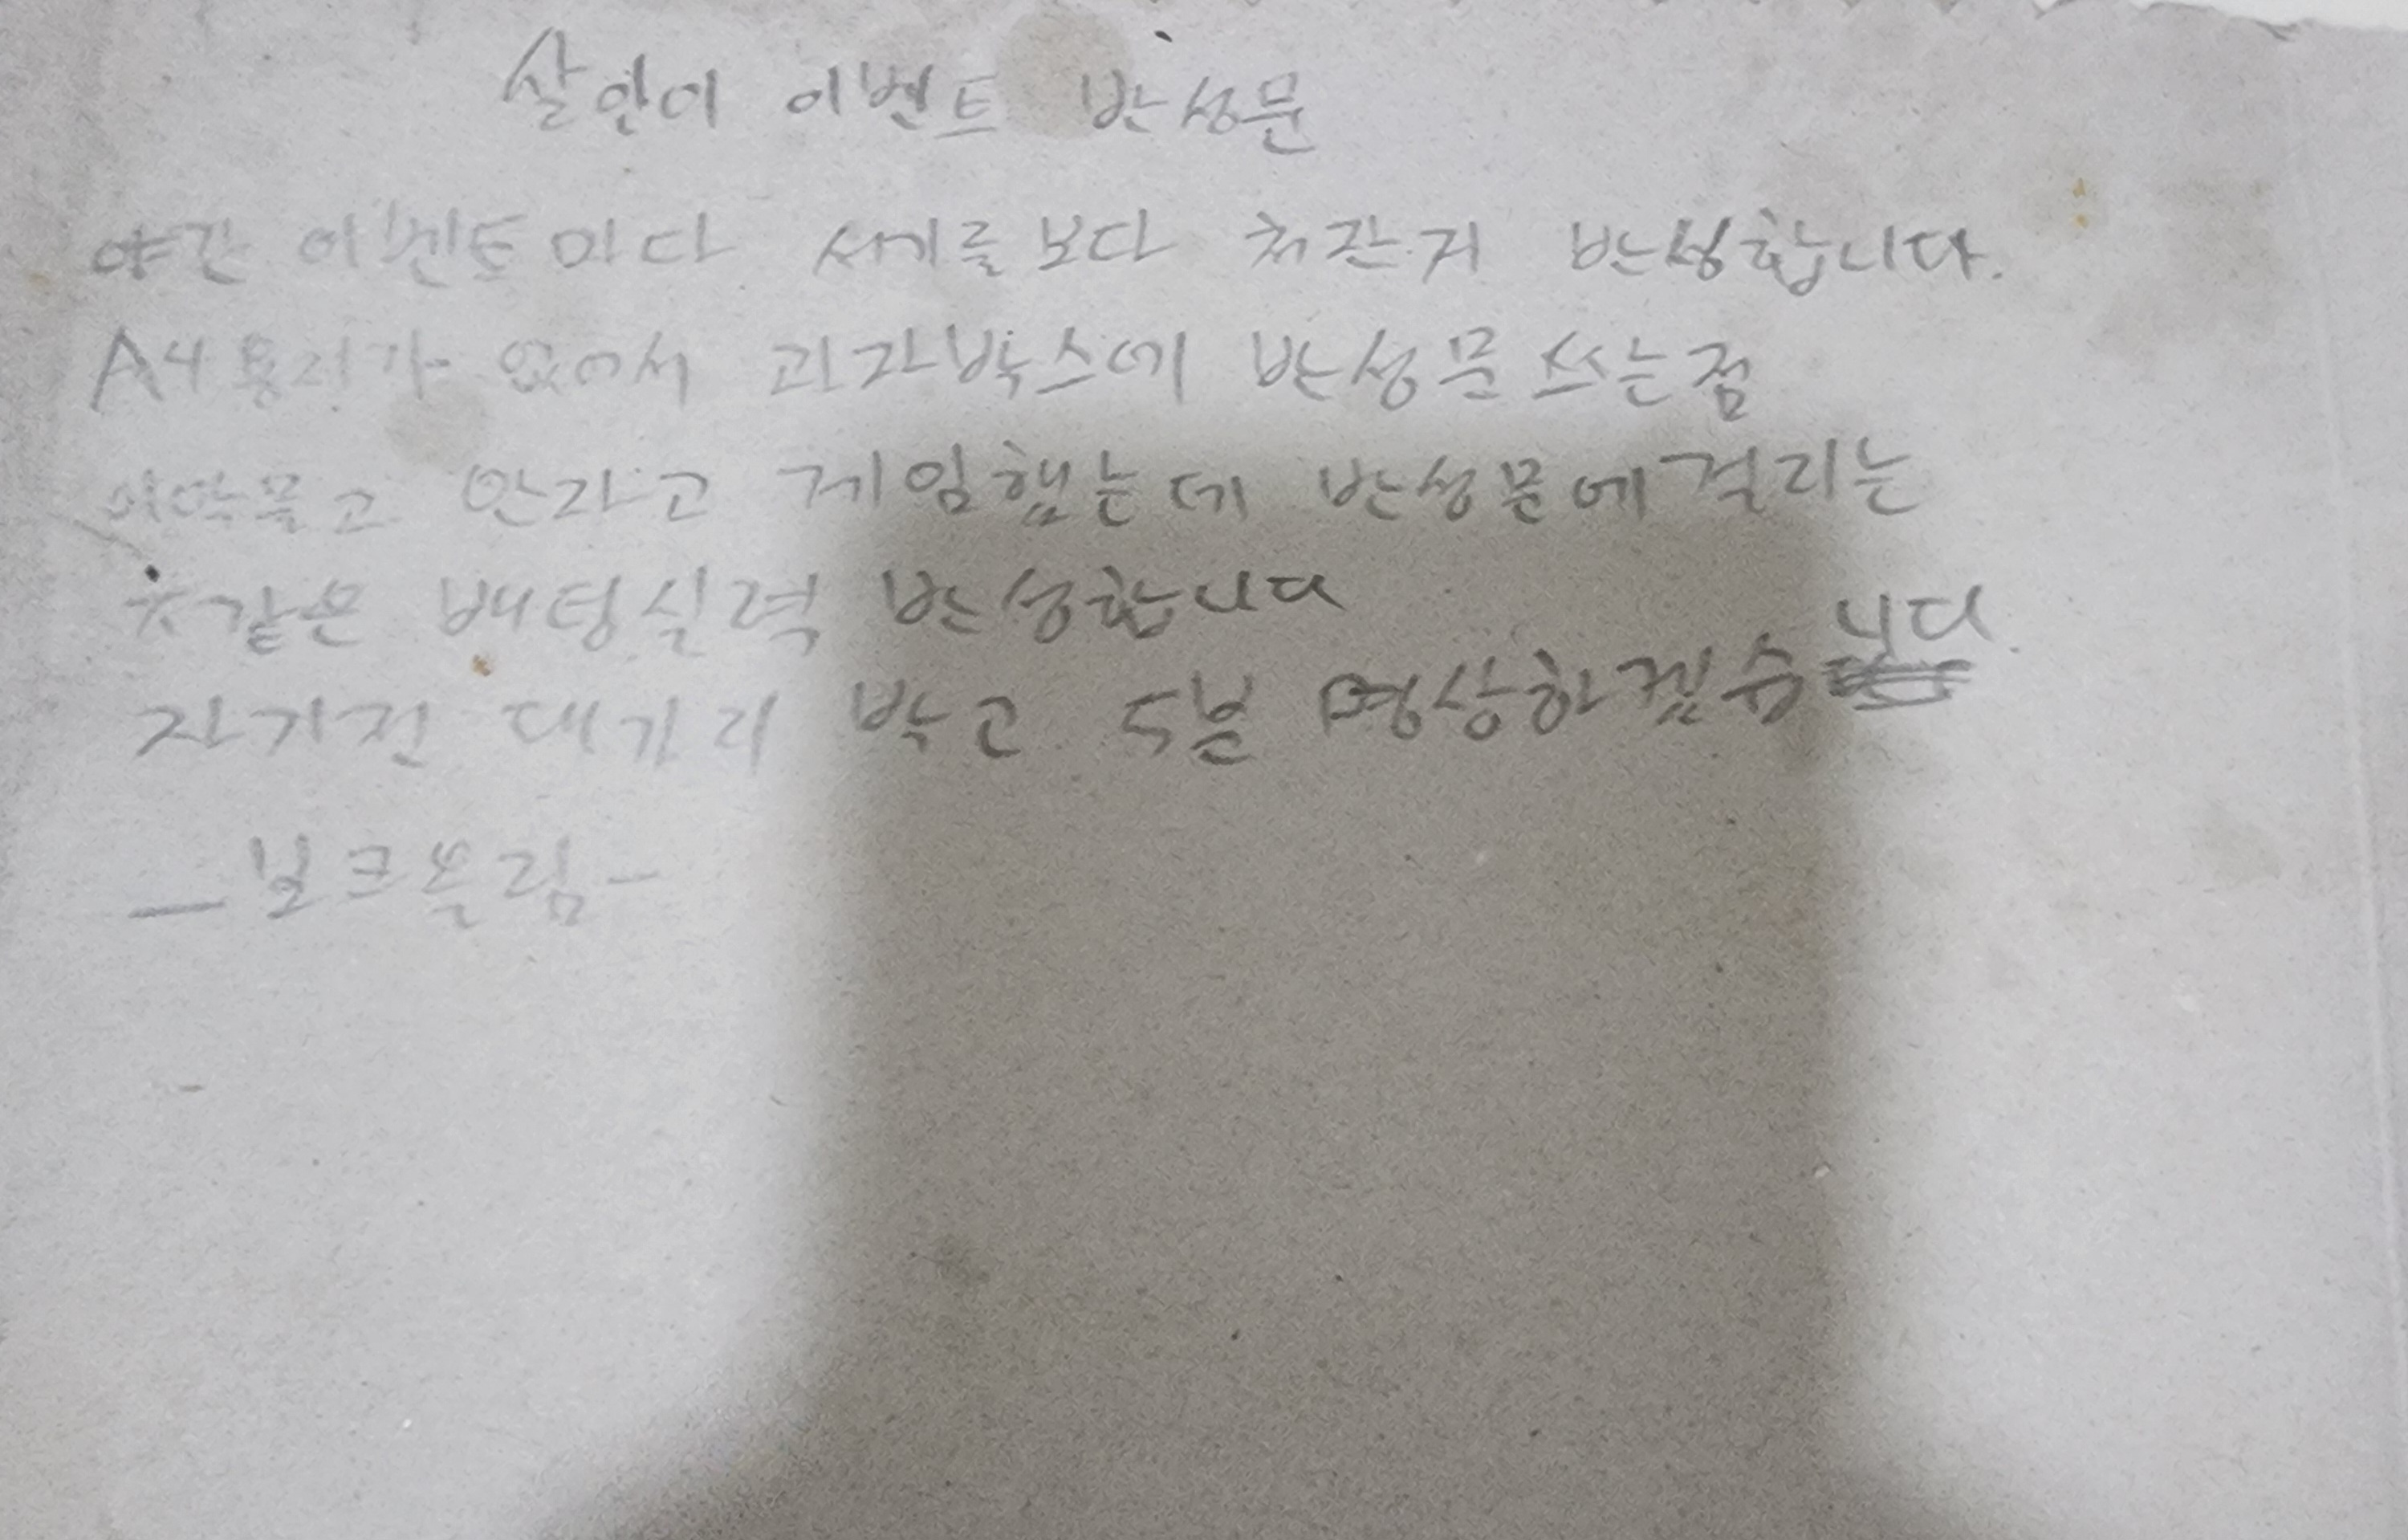 살인이 이벤트 반성문
야간 이벤트마다 세를보다 처잔거 반성합니다.
A4용지가 없어서 과자박스에 반성문 쓰는점
이악물고 안자고 게임했는데 반성문에 걸리는
ㅈ같은 배팅실력 반성합니다
자기전 대가리 박고 5분 명상하겠습니다.